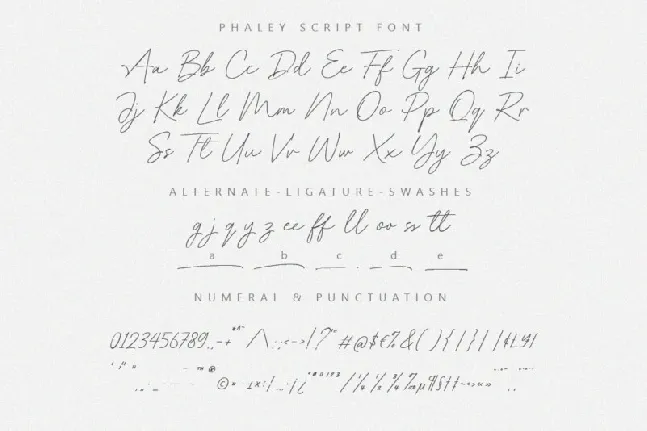 PHALEY SCRIPT FONT
Aa Bb Cc Dd Ee Ff Gg Hh Ii
Jj Kk Ll Mm Nn Oo Pp Qq Rr
Ss Tt Uu Vv Ww Xx Yy Zz
ALTERNATE-LIGATURE-SWASHES
g j q y z ee ff ll oo ss tt
a b c d e
NUMERAL & PUNCTUATION
0123456789 #@$€%&( )